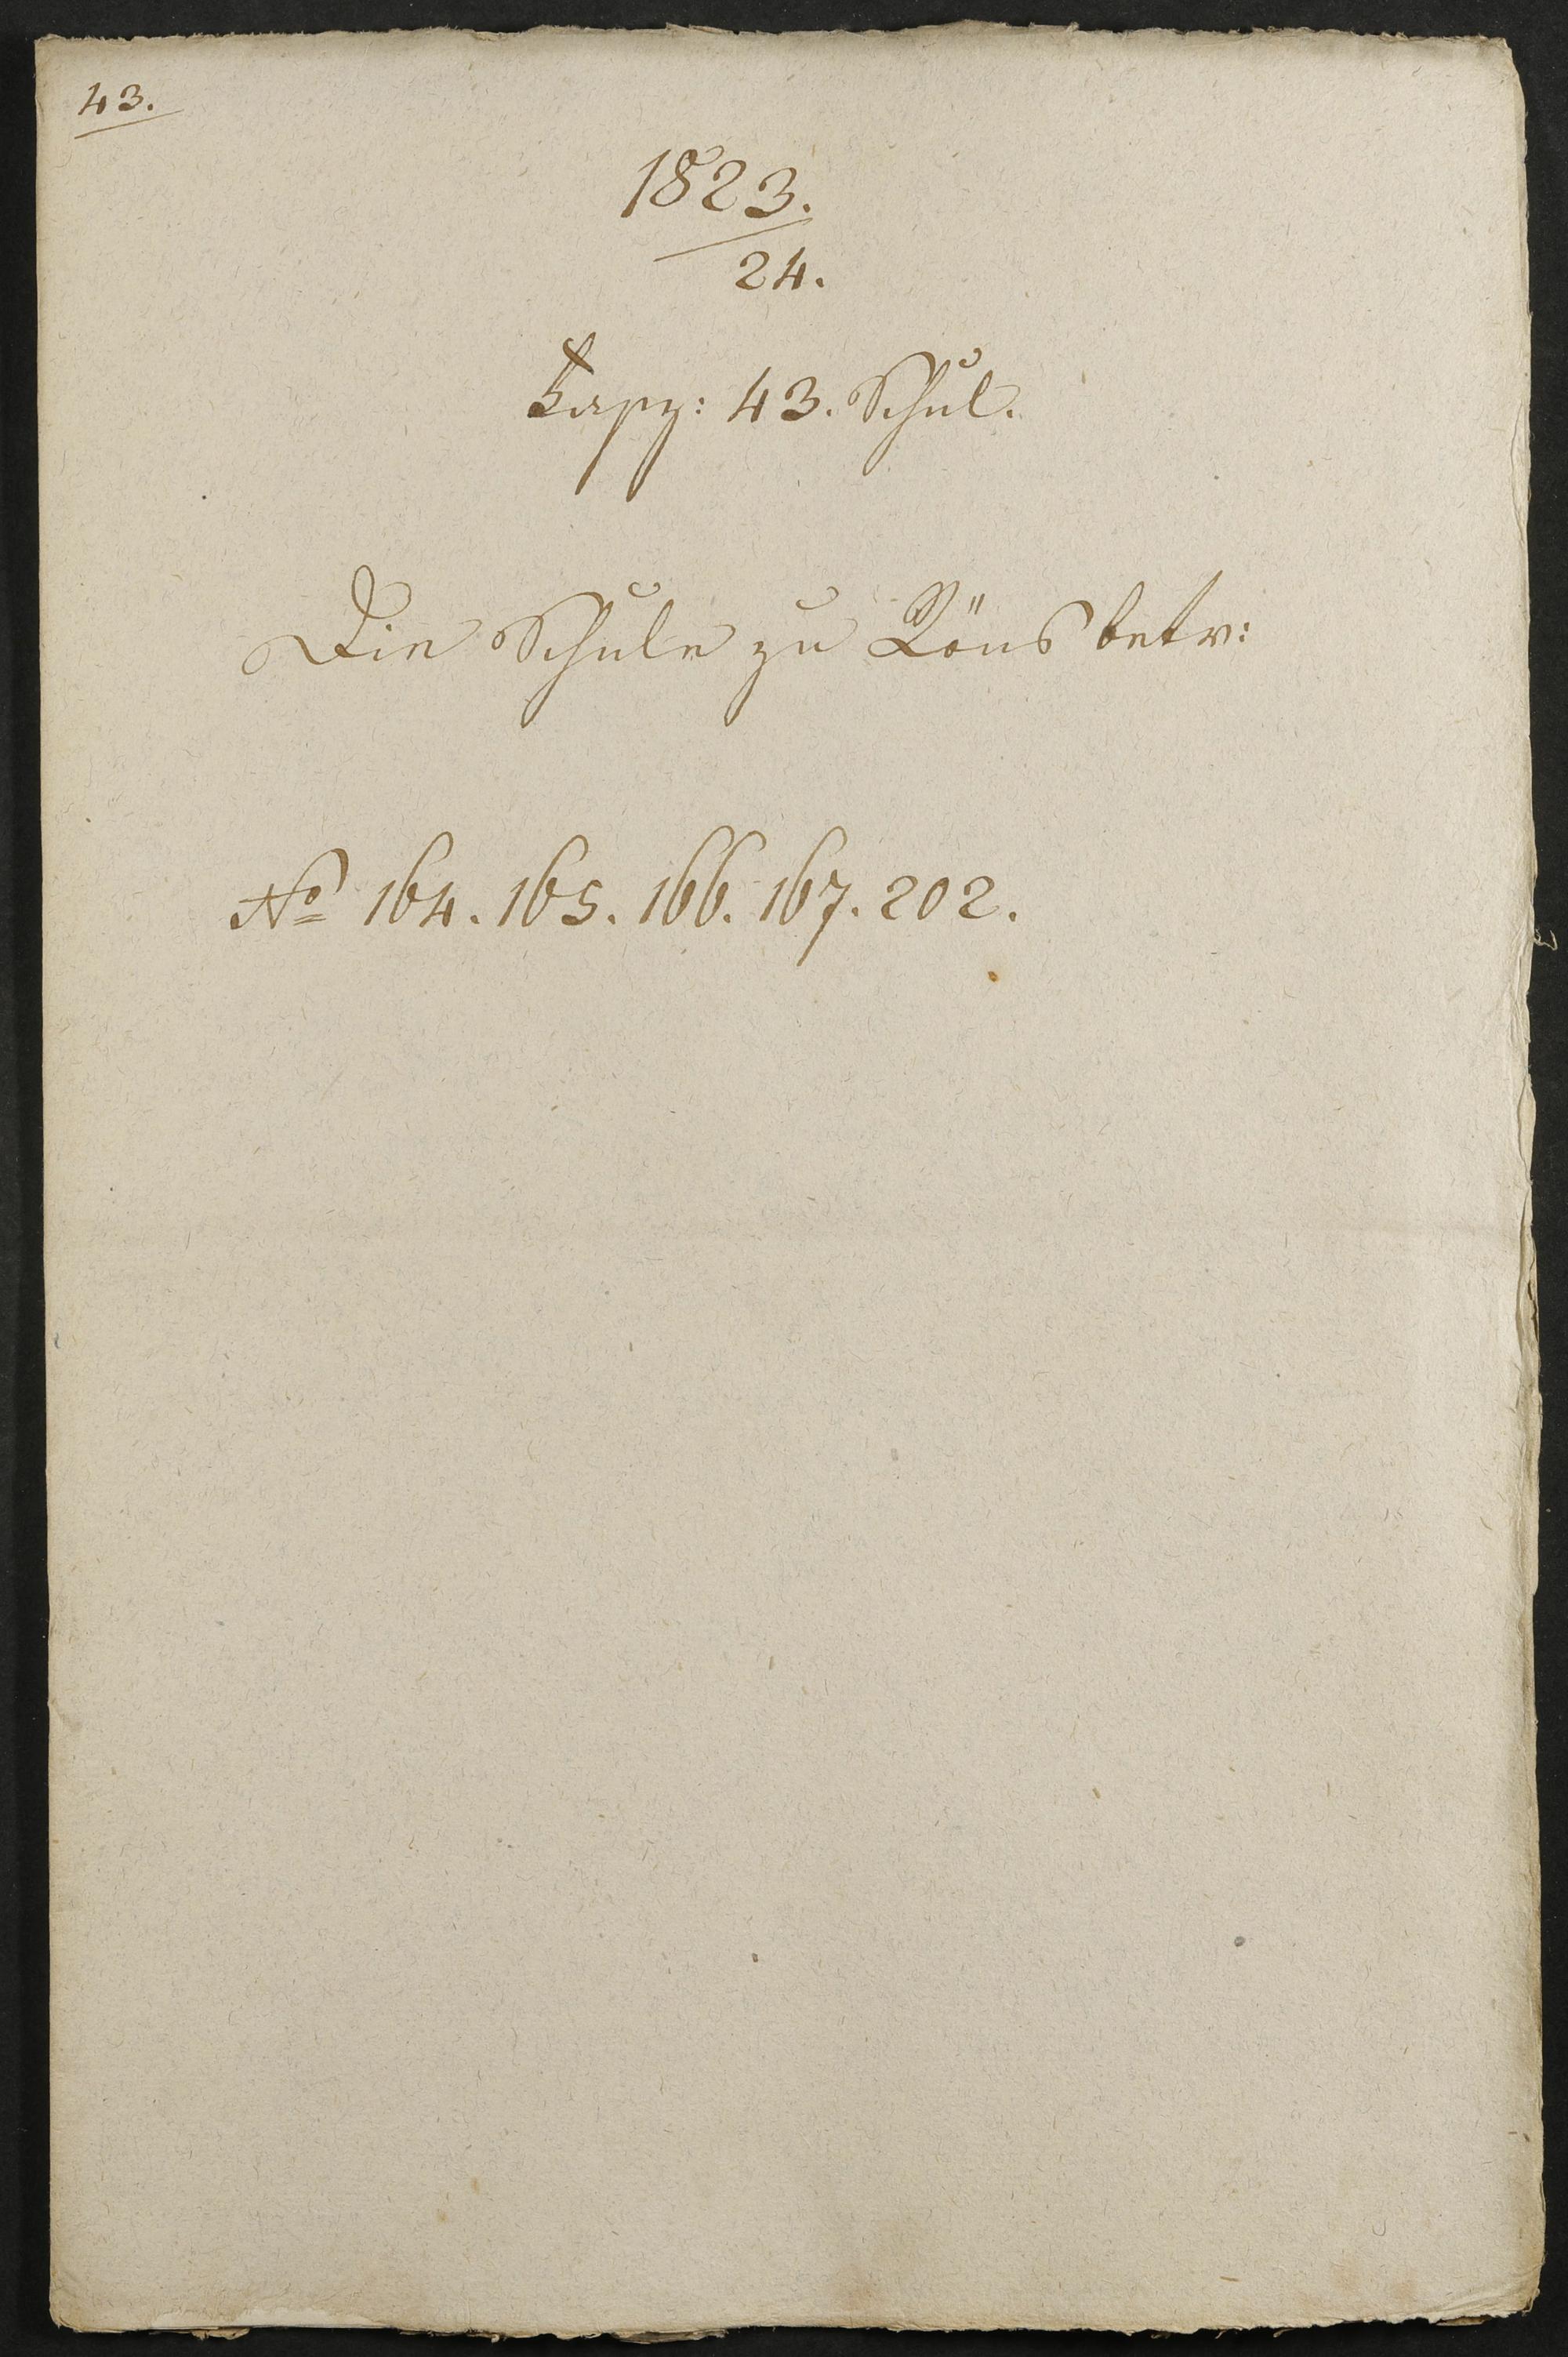 43.
1823.
24.
Fasz: 43. Schul.
Die Schule zu Röns betr:
No 164. 165. 166. 167. 202.